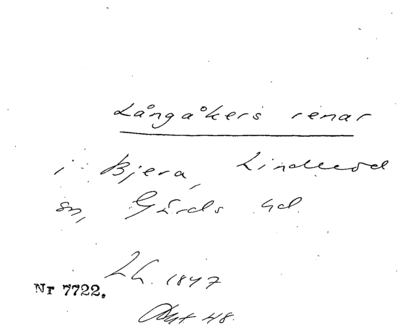 Långåkers renar
i Bjera, Linderöd
sn, Gärds hd.
1847
Nr 7722.
48.